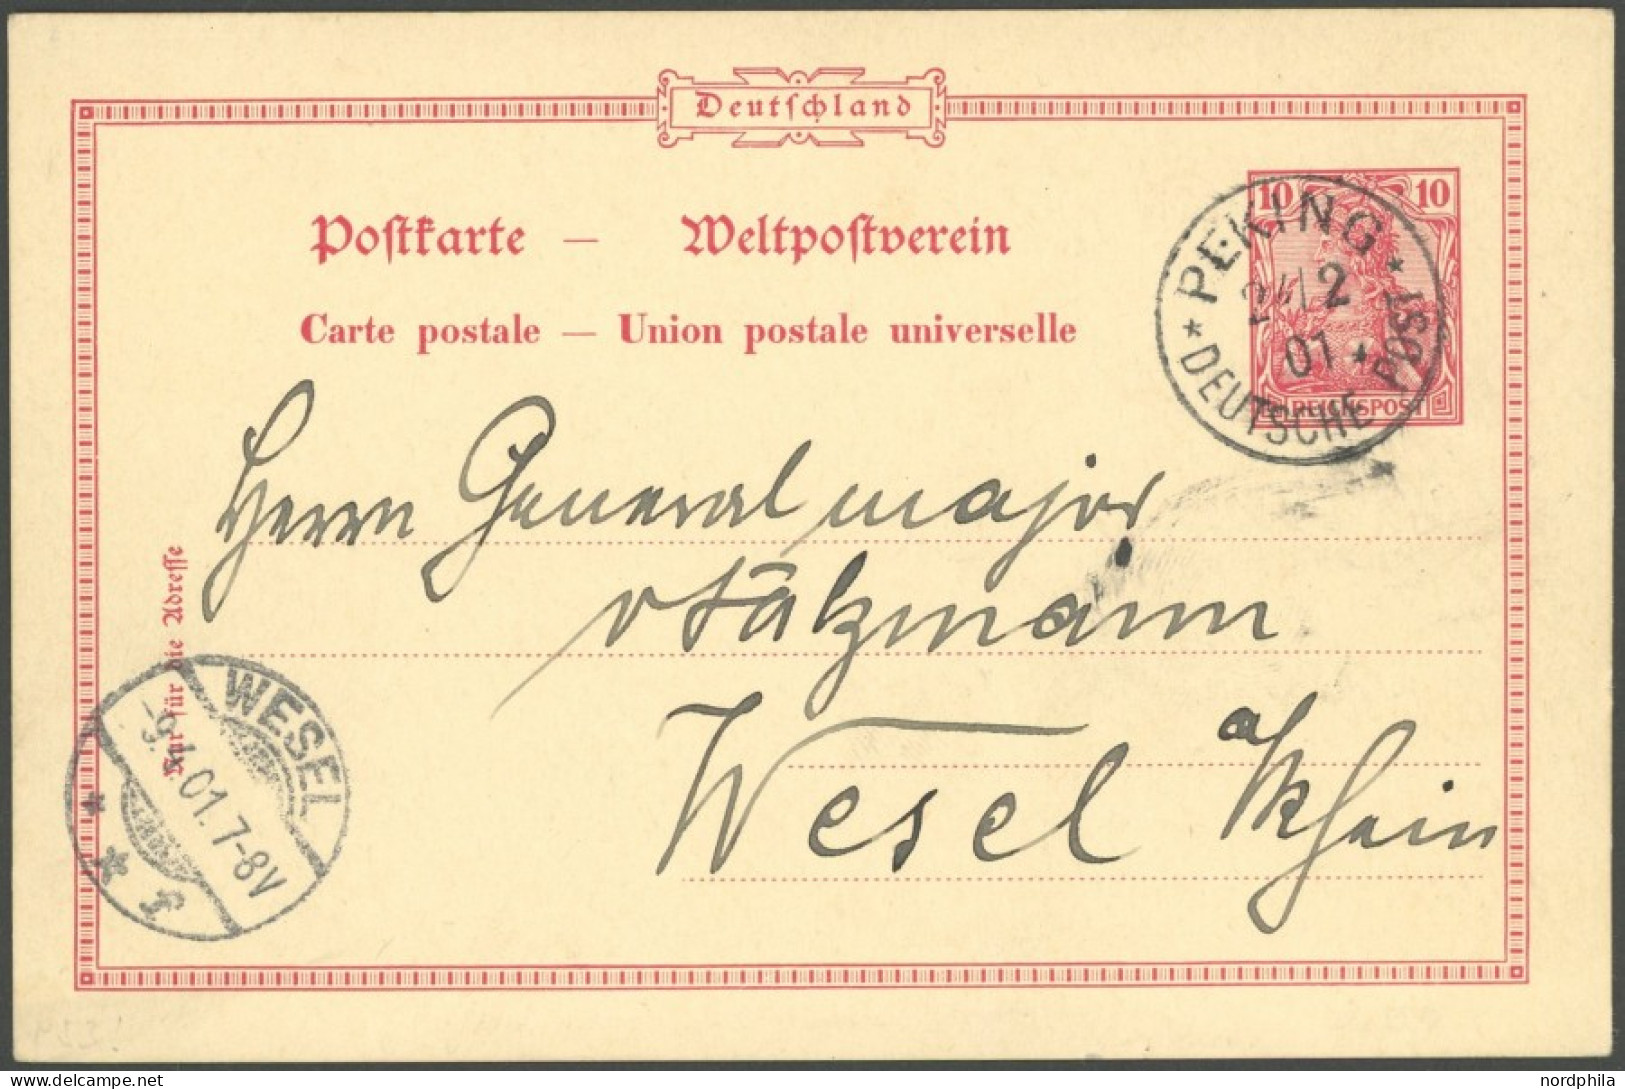 Deutschland
Postkarte — Weltpostverein
Carte postale — Union postale universelle
10 10
REICHSPOST
PEKING
2
01
DEUTSCHE POST
Herrn Generalmajor
v Sälzmann
Wesel a/Rhein
Nur für die Adresse
WESEL
-9.4.01.7-8V
f
nordphila